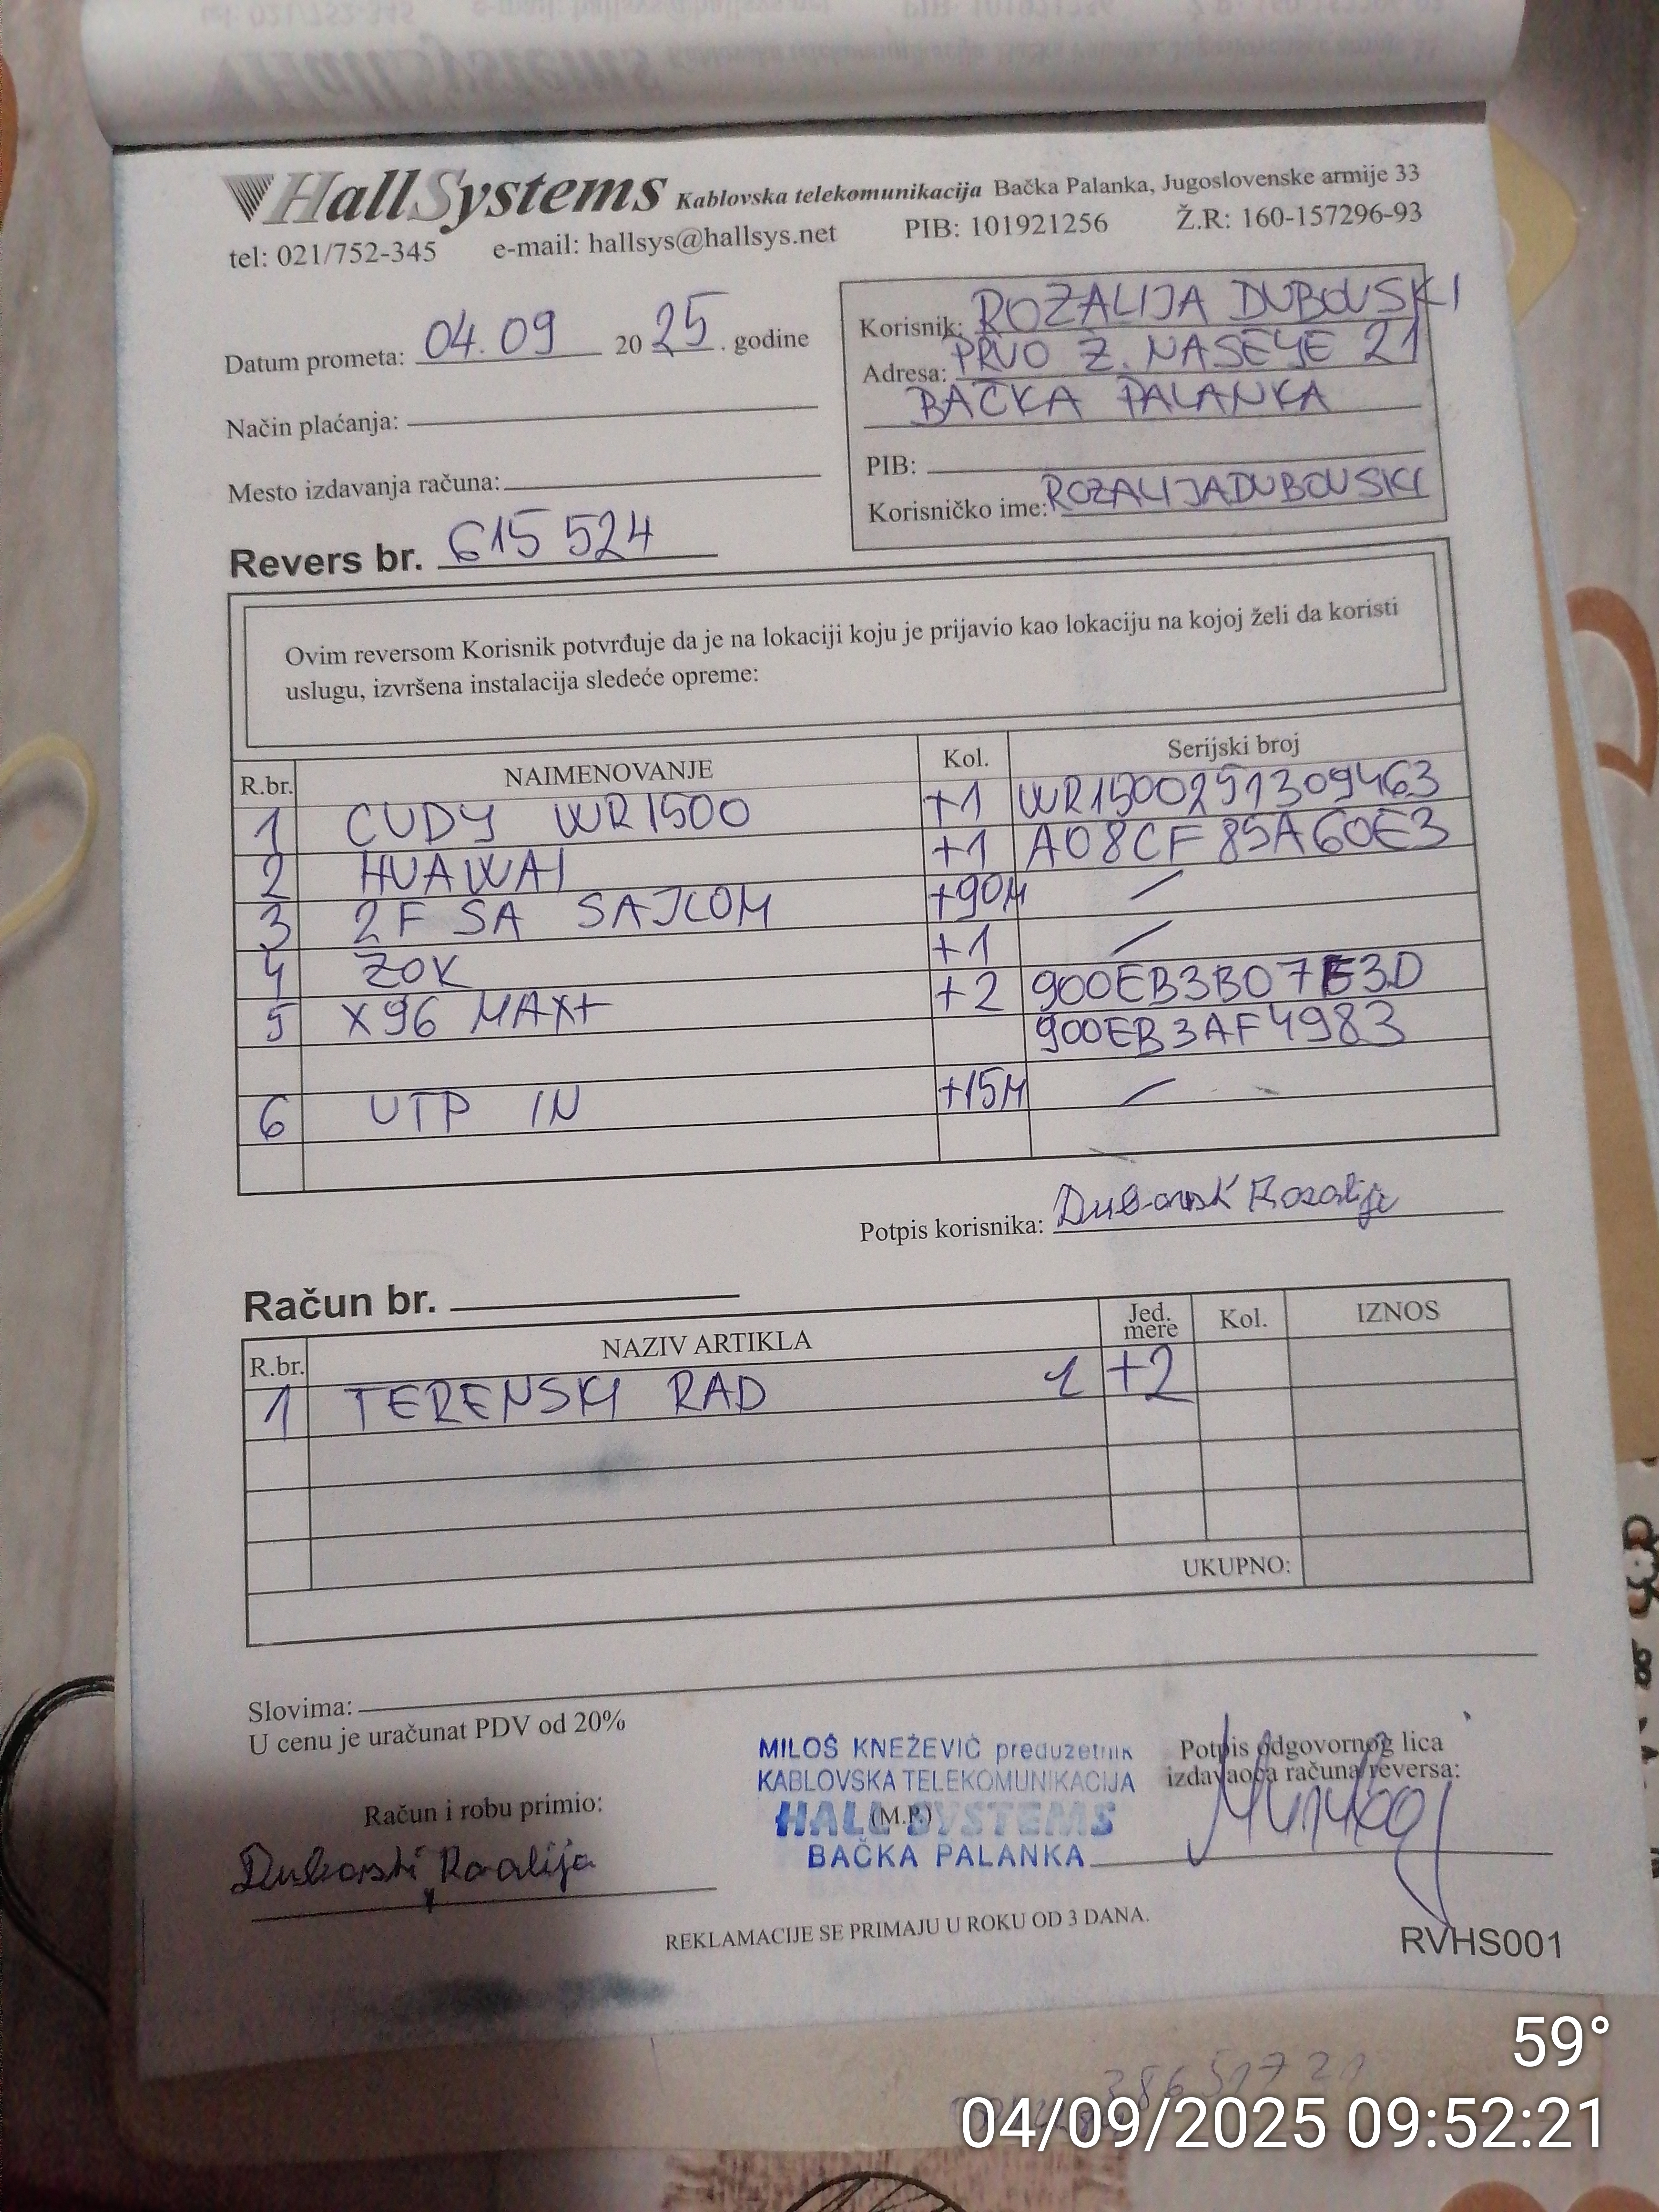 HallSystems Kablovska telekomunikacija Bačka Palanka, Jugoslovenske armije 33
tel: 021/752-345 e-mail: hallsys@hallsys.net PIB: 101921256 Ž.R: 160-157296-93
Datum prometa: 04.09 2025. godine
Način plaćanja:
Mesto izdavanja računa:
Korisnik: ROZALIJA DUBOVSKI
Adresa: PRVO Ž. NASEYE 21
BAČKA PALANKA
PIB:
Korisničko ime: ROZALIJADUBOVSKI
Revers br. 615 524
Ovim reversom Korisnik potvrđuje da je na lokaciji koju je prijavio kao lokaciju na kojoj želi da koristi
uslugu, izvršena instalacija sledeće opreme:
R.br. NAIMENOVANJE Kol. Serijski broj
1 CUDY WR1500 +1 WR1500251309463
2 HUAWAI +1 A08CF85A60E3
3 2F SA SAJLOM +90M /
4 ZOK +1 /
5 X96 MAX+ +2 900EB3B07E3D
900EB3AF4983
6 UTP IN +15M /
Potpis korisnika: Dubovski Rozalija
Račun br.
R.br. NAZIV ARTIKLA Jed. mere Kol. IZNOS
1 TERENSKI RAD 1 +2
UKUPNO:
Slovima:
U cenu je uračunat PDV od 20%
Račun i robu primio:
Dubovski Rozalija
MILOŠ KNEŽEVIĆ preduzetnik
KABLOVSKA TELEKOMUNIKACIJA
HALL SYSTEMS
(M.P.)
BAČKA PALANKA
Potpis odgovornog lica
izdavaoca računa/reversa:
REKLAMACIJE SE PRIMAJU U ROKU OD 3 DANA.
RVHS001
59°
04/09/2025 09:52:21